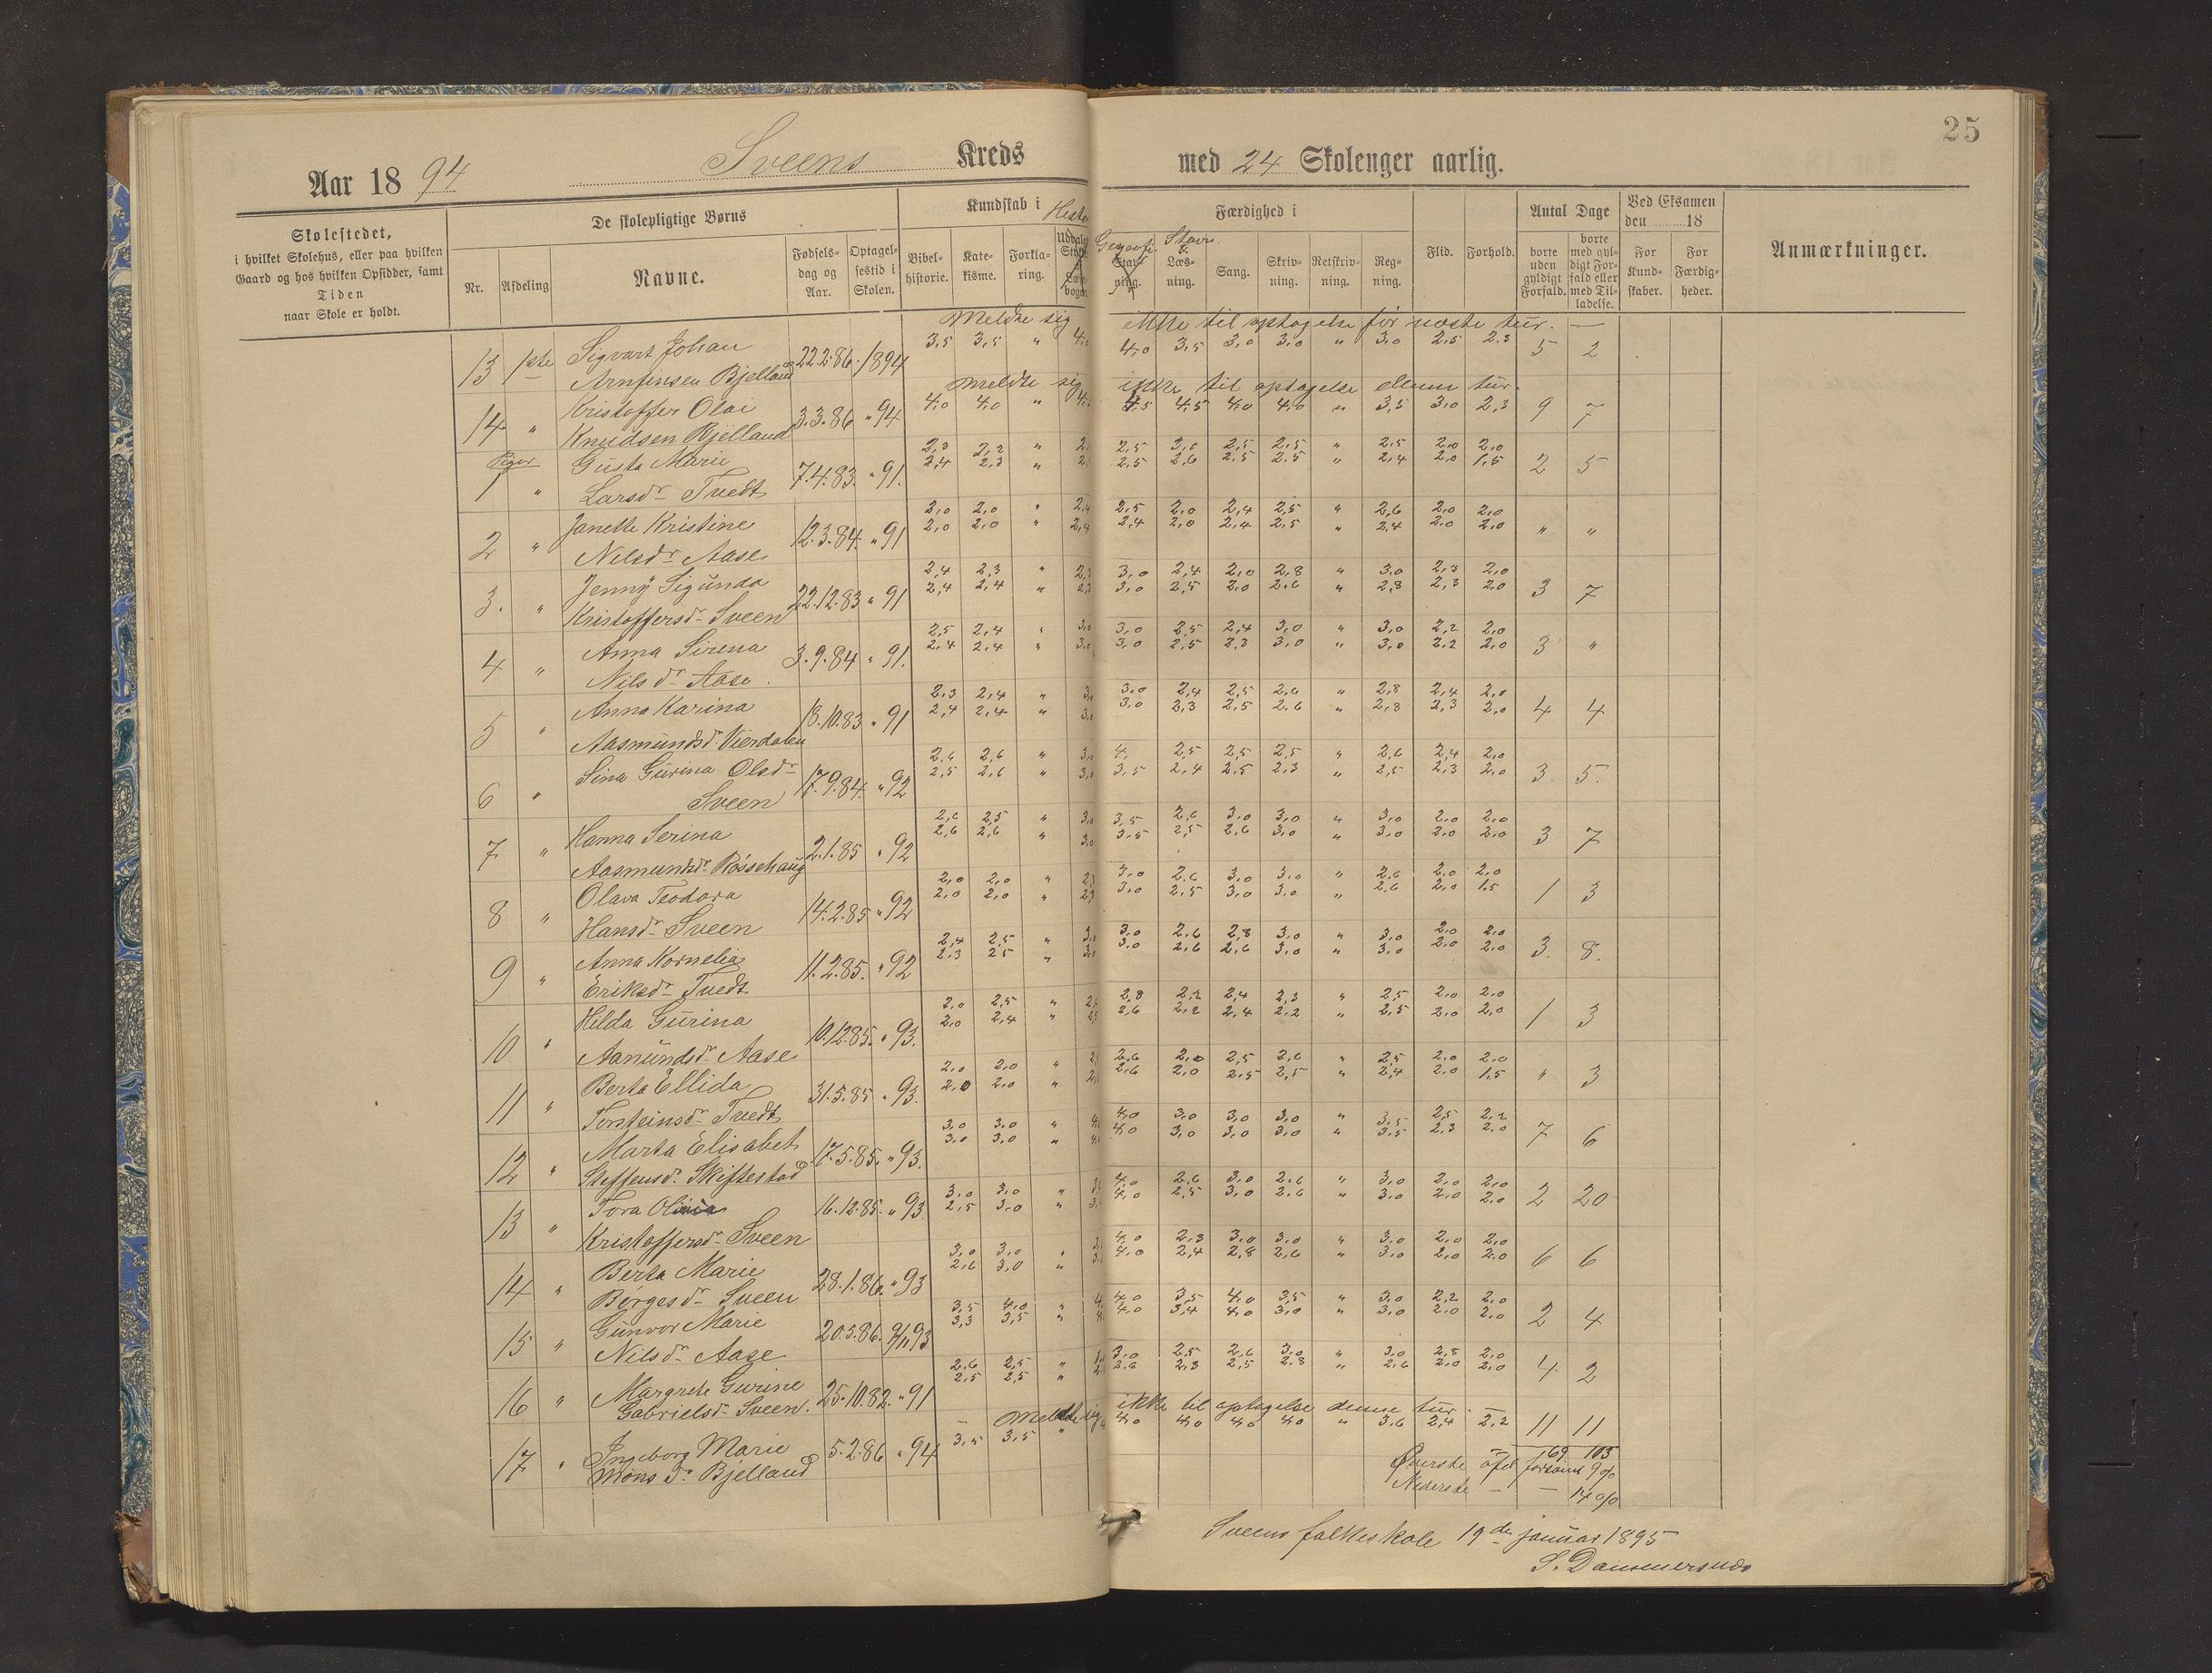 25
Aar 18 94 Sveens Kreds med 24 Skolenger aarlig.
Skolestedet,
i hvilket Skolehus, eller paa hvilken
Gaard og hos hvilken Opsidder, samt
Tiden
naar Skole er holdt.
De skolepligtige Børns
Nr. Afdeling Navne. Fødselsdag og Aar. Optagelsestid i Skolen.
Kundskab i
Bibelhistorie. Katekisme. Forklaring.
Færdighed i
Stavning. Læsning. Sang. Skrivning. Retskrivning. Regning.
Flid. Forhold.
Antal Dage
borte uden gyldigt Forfald. borte med gyldigt Forfald eller med Tilladelse.
Ved Eksamen
den 18
For Kundskaber. For Færdigheder.
Anmærkninger.
Meldte sig ikke til optagelse før næste tur. —
13 1ste Sigvart Johan 22.2.86. 1894 3,5 3,5 " 4,0 4,0 3,5 3,0 3,0 " 3,0 2,5 2,3 5 2
Arnfinsen Bjelland
meldte sig ikke til optagelse denne tur.
14 " Kristoffer Olai 3.3.86 " 94 4,0 4,0 " 4,5 4,5 4,0 4,0 " 3,5 3,0 2,3 9 7
Knudsen Bjelland
Piger
1 " Gusta Marie 7.4.83. " 91. 2,5 2,5 2,5 " 2,5 2,0 2,0 2 5
Larsdr Tvedt 2,4 2,3 " 2,5 2,6 2,5 2,5 " 2,4 2,0 1,5
2 " Janette Kristine 12.3.84. " 91 2,0 2,0 " 2,4 2,5 2,0 2,4 2,5 " 2,6 2,0 2,0 " "
Nelsdr Aase 2,0 2,0 " 2,4 2,4 2,0 2,4 2,5 " 2,4 2,0 2,0
3. " Jenny Sigunda 22.12.83 " 91 2,4 2,3 " 2,3 3,0 2,4 2,0 2,8 " 3,0 2,3 2,0 3 7
Kristoffersdr Sveen 2,4 2,4 " 2,3 3,0 2,5 2,0 2,6 " 2,8 2,3 2,0
4 " Anna Sirena 3.9.84 " 91. 2,5 2,4 " 3,0 3,0 2,5 2,4 3,0 " 3,0 2,2 2,0 3 "
Nils dr Aase. 2,4 2,4 " 3,0 3,0 2,5 2,3 3,0 " 3,0 2,2 2,0
5 " Anna Karina 18.10.83 " 91 2,3 2,4 " 3,0 3,0 2,4 2,5 2,6 " 2,8 2,4 2,0 4 4
Aasmundsdr Vierdalen 2,4 2,4 " 3,0 3,0 2,3 2,5 2,6 " 2,8 2,3 2,0
6 " Sina Gurina Olsdr 17.9.84. " 92 2,6 2,6 " 3,0 4, 2,5 2,5 2,5 " 2,6 2,4 2,0 3. 5.
Sveen 2,5 2,6 " 3,0 3,5 2,4 2,5 2,3 " 2,5 2,3 2,0
7 " Hanna Serina 2.1.85 " 92 2,6 2,5 " 3,0 3,5 2,6 3,0 3,0 " 3,0 2,0 2,0 3 7
Aasmundsdr Røssehaug 2,6 2,6 " 3,0 3,5 2,5 2,6 3,0 " 3,0 2,0 2,0
8 " Olava Teodora 14.2.85 " 92 2,0 2,0 " 2,3 3,0 2,6 3,0 3,0 " 2,6 2,0 2,0 1 3
Hansdr Sveen 2,0 2,0 " 2,3 3,0 2,5 3,0 3,0 " 2,6 2,0 1,5
9 " Anna Kornelia 11.2.85. " 92 2,4 2,5 " 3,0 3,0 2,6 2,8 3,0 " 3,0 2,0 2,0 3. 8.
Eriksdr Tvedt 2,3 2,5 " 3,0 3,0 2,6 2,6 3,0 " 3,0 2,0 2,0
10 " Hilda Gurina 10.12.85. " 93. 2,0 2,5 " 2,8 2,2 2,4 2,3 " 2,5 2,0 2,0 1 3
Aanundsdr Aase 2,0 2,4 " 2,6 2,2 2,4 2,2 " 2,5 2,0 2,0
11 " Berta Ellida 31.5.85 " 93. 2,0 2,0 " 2,6 2,0 2,5 2,6 " 2,5 2,0 2,0 " 3
Torsteinsdr Tvedt 2,0 2,0 " 2,6 2,0 2,5 2,5 " 2,4 2,0 1,5
12 " Marta Elisabet 17.5.85. " 93. 3,0 3,0 " 4,0 3,0 3,0 3,0 " 3,5 2,5 2,2 7 6
Steffensdr Skiftestad 3,0 3,0 " 4,0 3,0 3,0 3,0 " 3,5 2,3 2,0
13 " Tora 16.12.85. " 93. 3,0 3,0 " 4,0 2,6 3,0 2,6 " 3,0 2,0 2,0 2 20
Kristoffersdr Sveen 2,5 3,0 " 4,0 2,5 3,0 2,6 " 3,0 2,0 2,0
14 " Berta Marie 28.1.86. " 93 3,0 3,0 " 4,0 2,3 3,0 3,0 " 3,0 2,0 2,0 6 6
Børgesdr Sveen 2,6 3,0 " 4,0 2,4 2,8 2,6 " 3,0 2,0 2,0
15 " Gunvor Marie 20.3.86. 93 3,5 4,0 " 4,0 3,5 4,0 3,5 " 3,0 2,2 2,0 2 4
Nilsdr Aase 3,3 3,5 " 4,0 3,4 4,0 3,0 " 3,0 2,0 2,0
16 " Margrete Gurine 25.10.82. " 91 2,6 2,5 " 3,0 2,5 2,6 3,0 " 3,0 2,8 2,0 4 2
Gabrielsdr Sveen. 2,5 2,5 " 2,6 2,3 2,5 2,8 " 2,6 2,0 2,0
— Meldte sig ikke til optagelse denne tur.
17 " Ingeborg Marie 5.2.86 " 94 3,5 3,5 " 4,0 4,0 4,0 4,0 " 3,6 2,4 2,2 11 11
Mons dr Bjelland
169 103
Øverste afd forsømt 9 %
Nederste — — 14 %
Sveens folkeskole 19de januar 1895